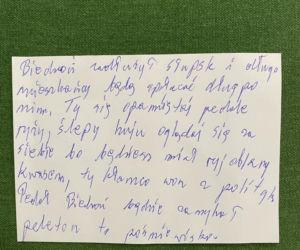 Biedroń zadłużył Słupsk i długo
mieszkańcy będą spłacać długi po
nim, Ty się opamiętaj pedale
ryży, ślepy huju oglądaj się za
siebie bo będziesz miał ryj oblany
kwasem, ty kłamco won z polityki
Pedał Biedroń będzie zamykał
peleton to